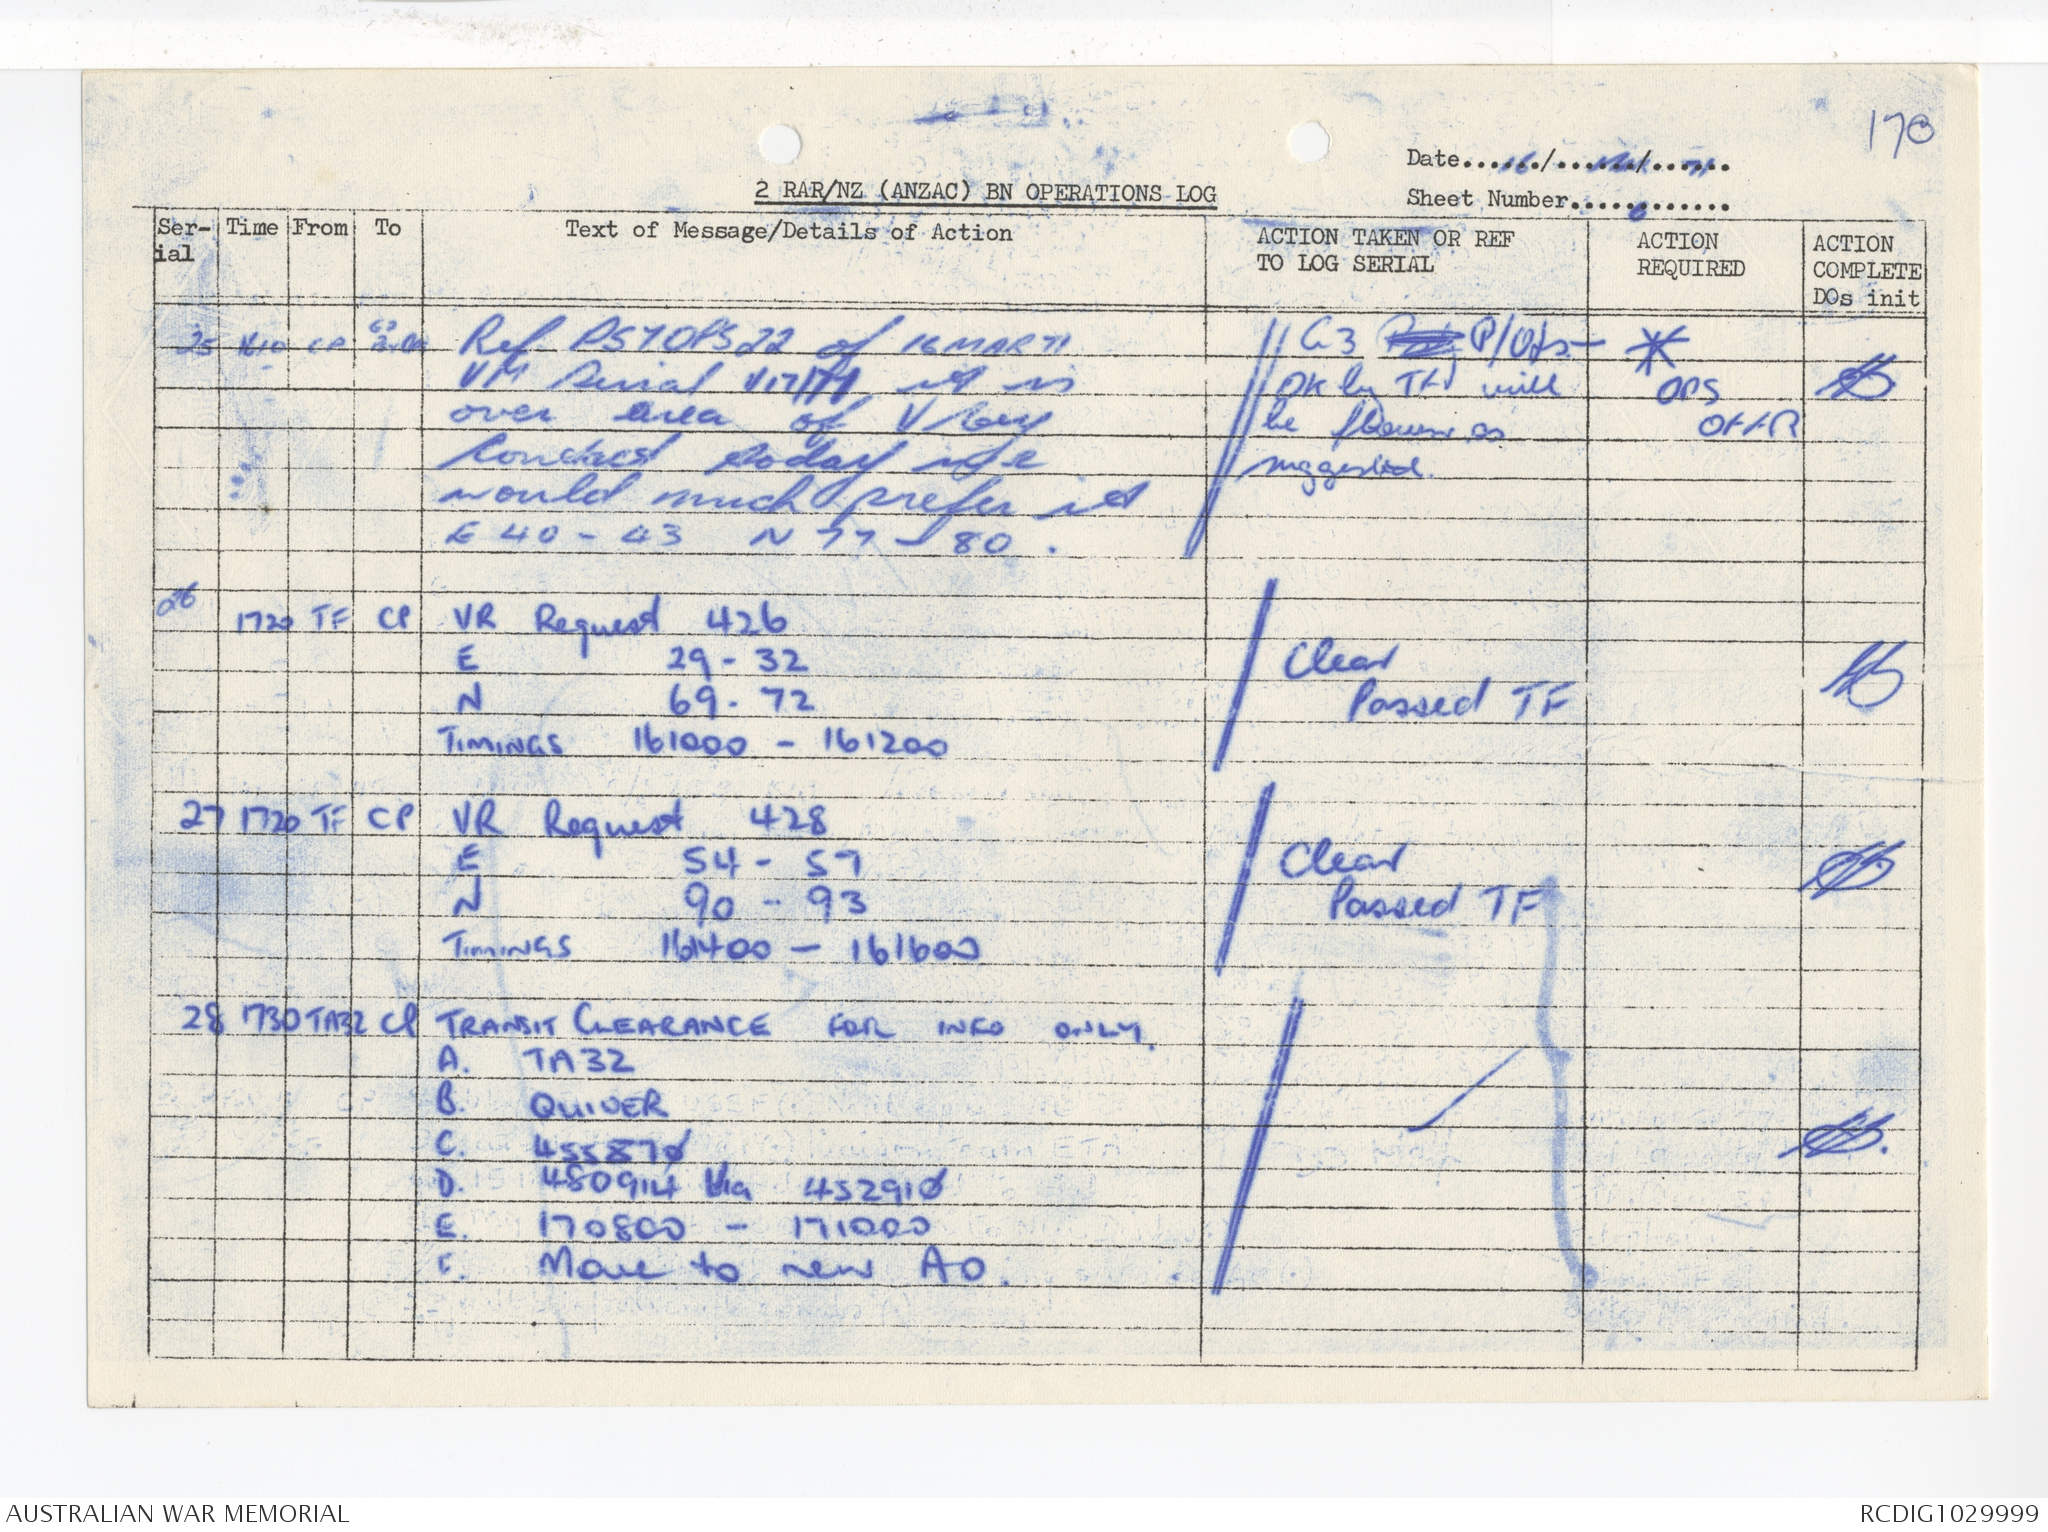 170
Date 16/MAR/71
Sheet Number 6
2 RAR/NZ (ANZAC) BN OPERATIONS LOG
Ser-ial Time From To Text of Message/Details of Action ACTION TAKEN OR REF TO LOG SERIAL ACTION REQUIRED ACTION COMPLETE DOs init
25 1610 CP Ref PSYOPS 22 of 16 MAR 71 G3 P/Ops -
VM Serial V17/71 it is OK by TF, will OPS
over area of V/Coy be flown as OFFR
Contact today we suggested.
would much prefer it
E 40 - 43 N 77 - 80.
26 1720 TF CP VR Request 426
E 29 - 32 Clear
N 69 - 72 Passed TF
TIMINGS 161000 - 161200
27 1720 TF CP VR Request 428
E 54 - 57 Clear
N 90 - 93 Passed TF
TIMINGS 161400 - 161600
28 1730 TA32 CP TRANSIT CLEARANCE FOR INFO ONLY.
A. TA32
B. QUIVER
C. 455870
D. 480914 Via 452910
E. 170800 - 171000
F. Move to new AO.
AUSTRALIAN WAR MEMORIAL RCDIG1029999